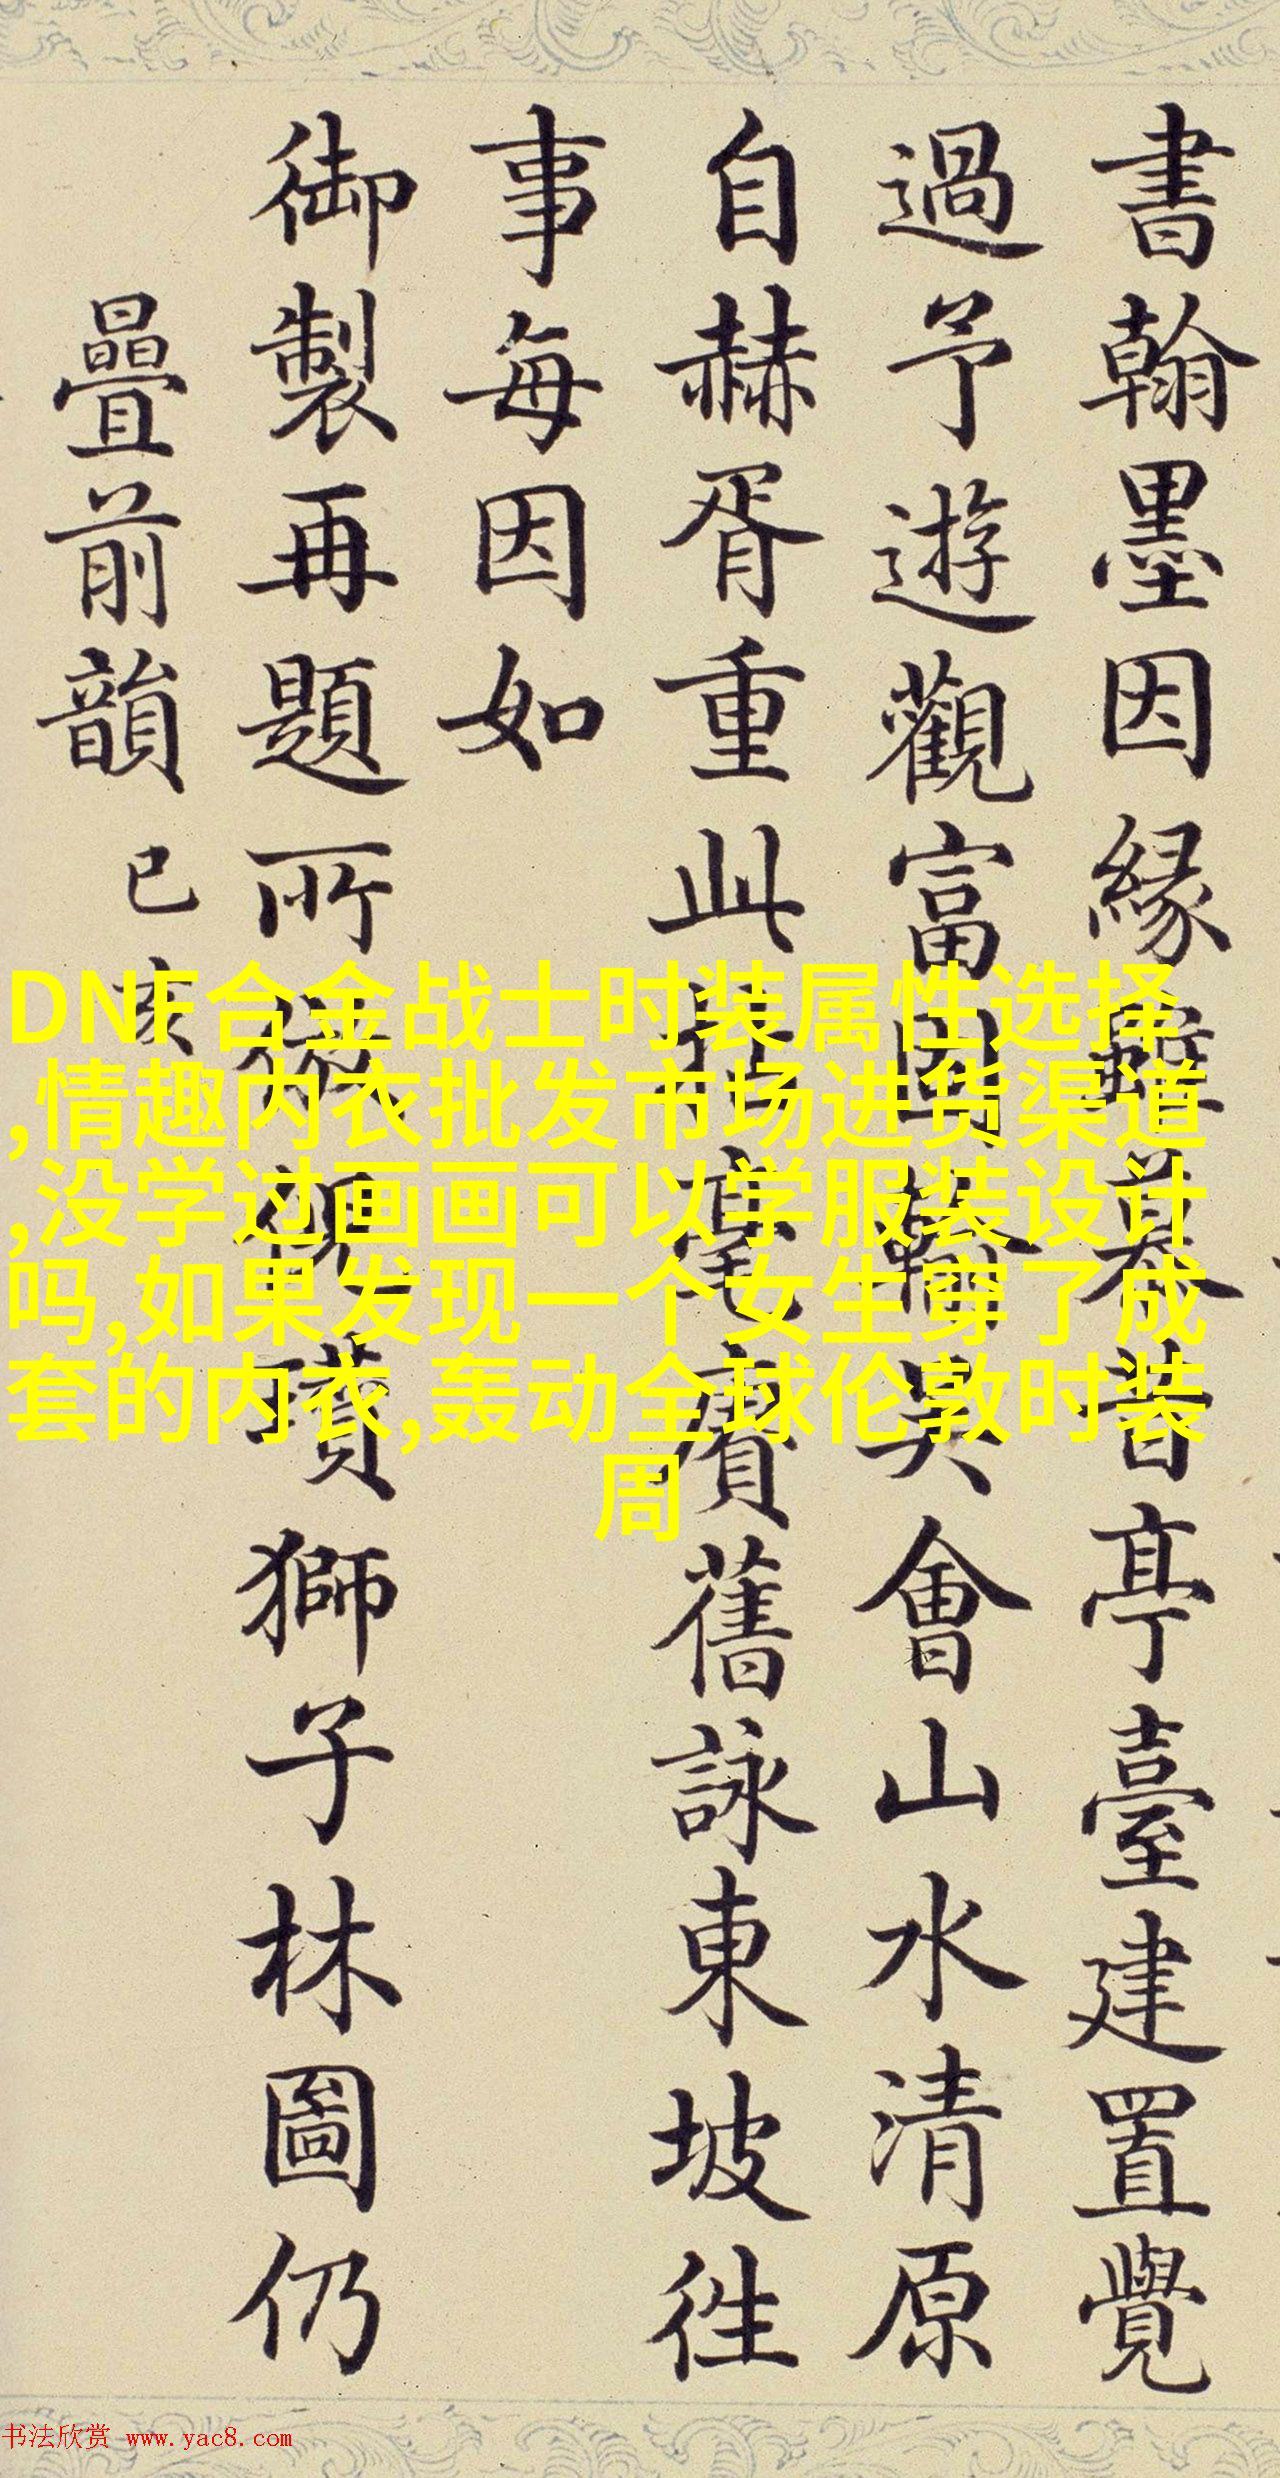 書翰墨因緣昔亭臺建置覺
過予遊觀富吳會山水清原
自赫胥重此賡舊詠東坡往
事每因如
御製再題所倪瓚獅子林圖仍
疊前韻 已亥
DNF合金战士时装属性选择
,情趣内衣批发市场进货渠道
,没学过画画可以学服装设计
吗,如果发现一个女生穿了成
套的内衣,轰动全球伦敦时装
周
书法欣赏 www.yac8.com